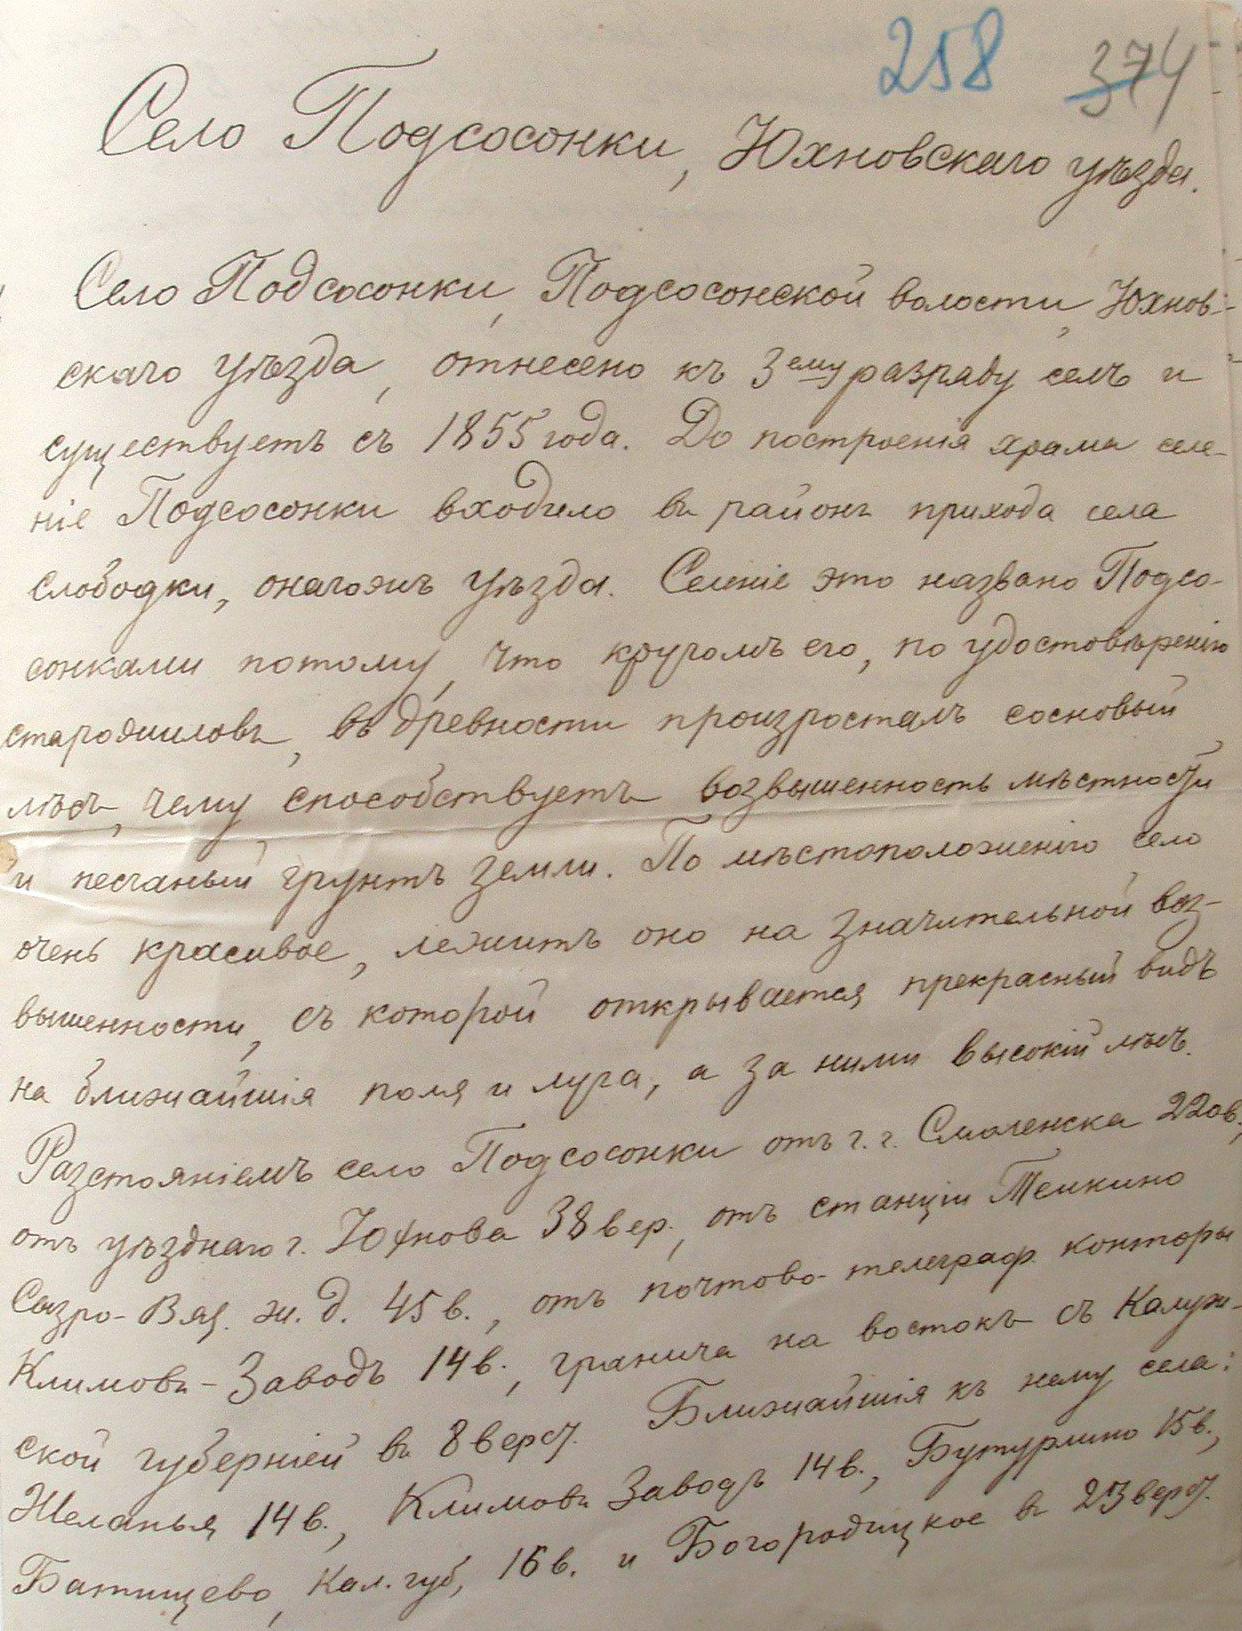 258 374
Село Подсосонки, Юхновскаго уѣзда.
Село Подсосонки, Подсосонской волости, Юхнов-
скаго уѣзда, отнесено къ 3ему разряду селъ и
существуетъ съ 1855 года. До построенія храма селе-
ніе Подсосонки входило въ районъ прихода села
Слободки, онагожъ уѣзда. Селеніе это названо Подсо-
сонками потому, что кругомъ его, по удостовѣренію
старожиловъ, въ древности произросталъ сосновый
лѣсъ, чему способствуетъ возвышенность мѣстности
и песчаный грунтъ земли. По мѣстоположенію село
очень красивое, лежитъ оно на значительной воз-
вышенности, съ которой открывается прекрасный видъ
на ближайшія поля и луга, а за ними высокій лѣсъ.
Разстояніемъ село Подсосонки отъ г. г. Смоленска 220 в.,
отъ уѣзднаго г. Юхнова 38 вер., отъ станціи Темкино
Сызро-Вяз. ж. д. 45 в., отъ почтово-телеграф. конторы
Климовъ-Заводъ 14 в., гранича на востокъ съ Калуж-
ской губерніей въ 8 верст. Ближайшія къ нему села:
Желанья 14 в., Климовъ Заводъ 14 в., Бутурлино 15 в.,
Батищево, Кал. губ, 16 в. и Богородицкое въ 23 верст.